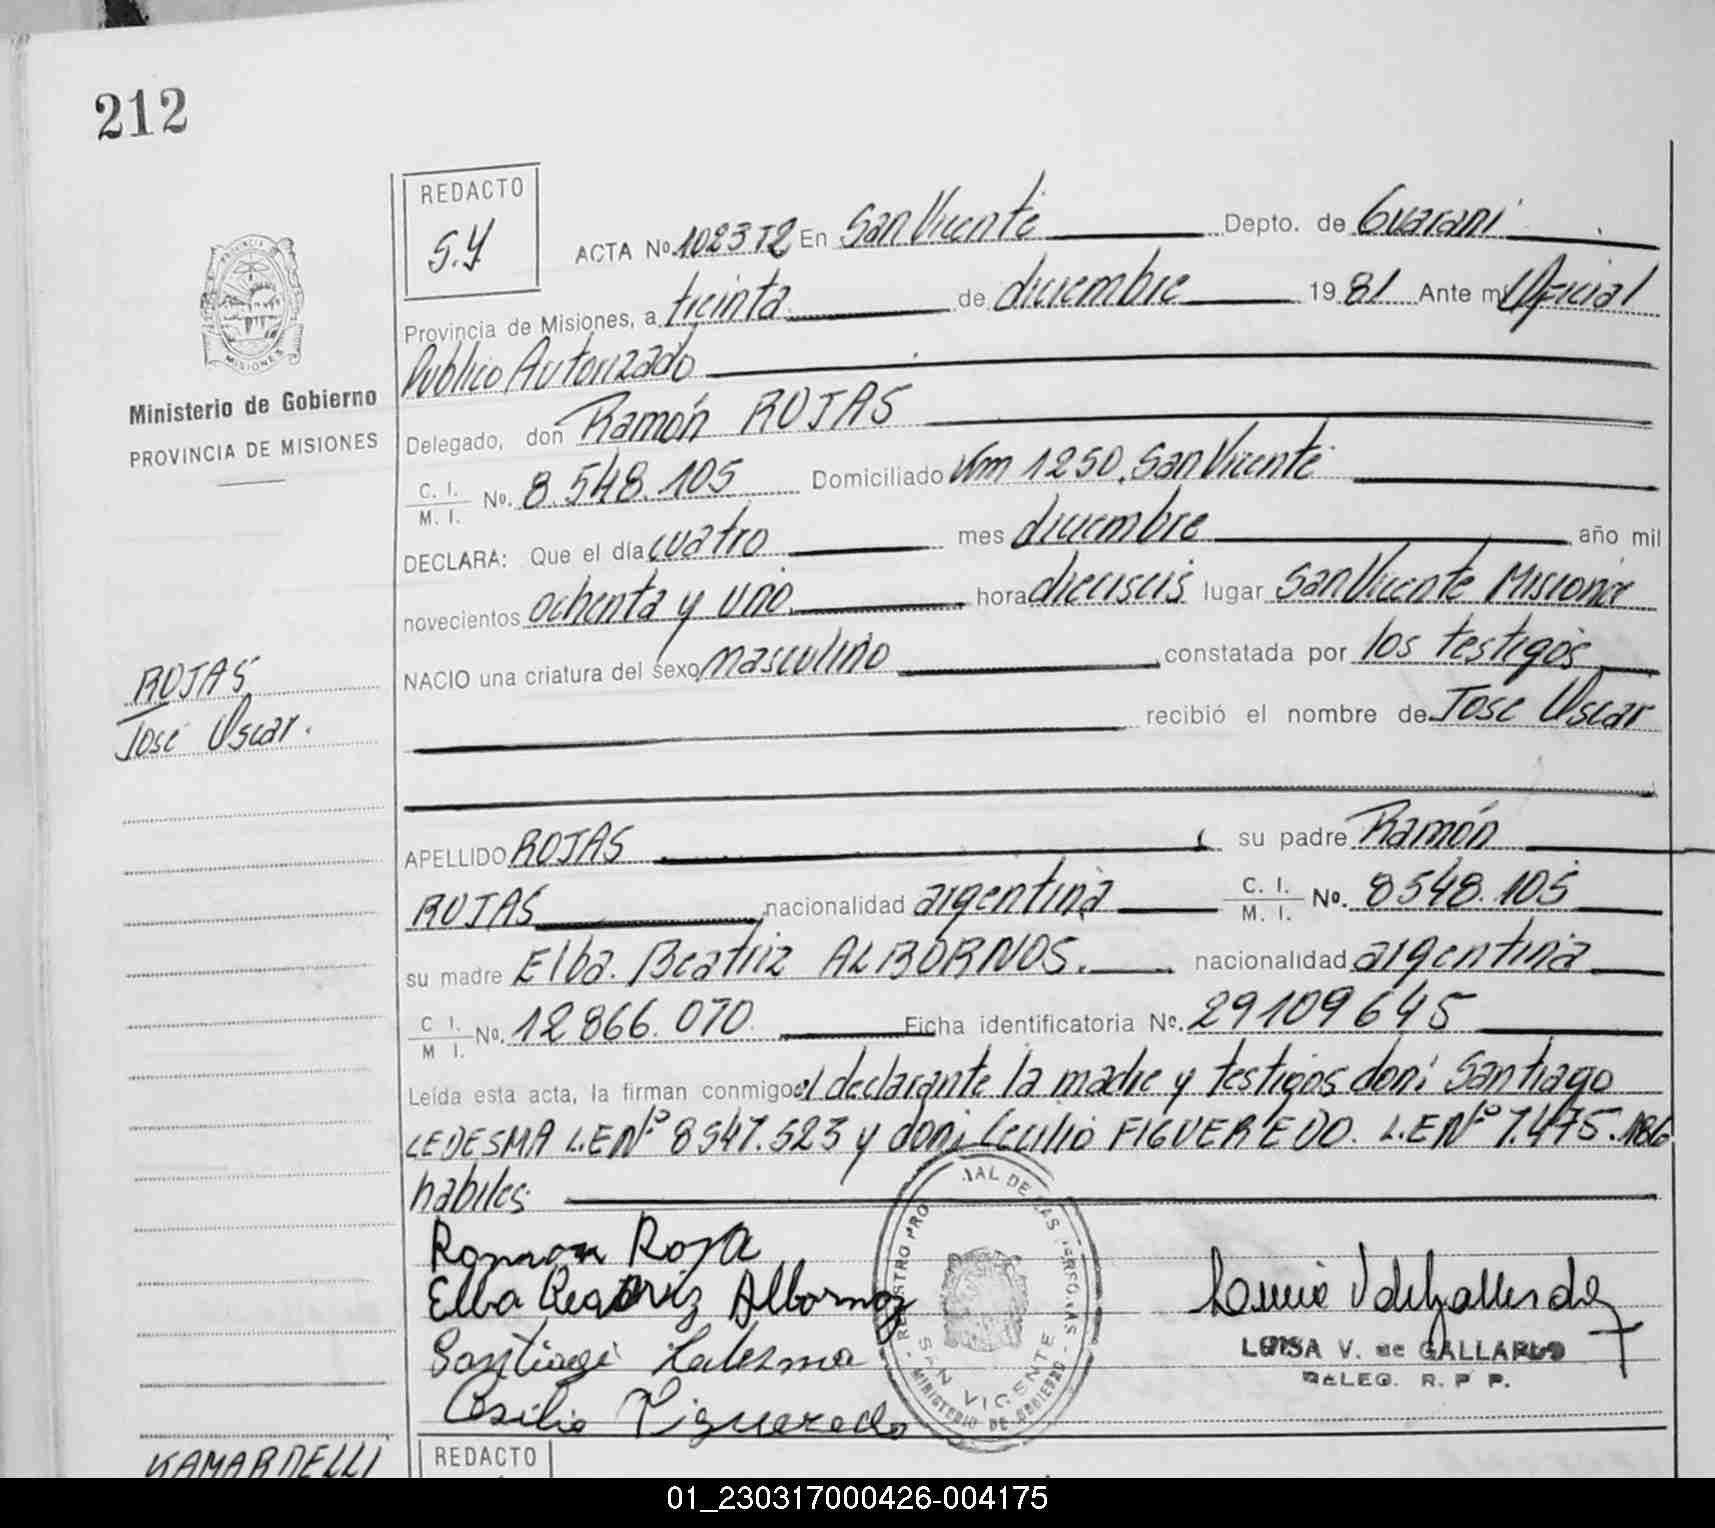 212
REDACTO
S.Y
ACTA No. 1023 T2 En San Vicente Depto. de Guarani
Provincia de Misiones, a treinta de diciembre 1981 Ante mi Oficial
Publico Autorizado
PROVINCIA DE
MISIONES
Ministerio de Gobierno
PROVINCIA DE MISIONES
Delegado, don Ramón ROJAS
C. I.
M. I. No. 8.548.105 Domiciliado Km 1250, San Vicente
DECLARA: Que el día cuatro mes diciembre año mil
novecientos ochenta y uno. hora dieciseis lugar San Vicente Misiones
NACIO una criatura del sexo masculino constatada por los testigos
recibió el nombre de Jose Oscar
ROJAS
José Oscar.
APELLIDO ROJAS su padre Ramón
ROJAS nacionalidad argentina C. I.
M. I. No. 8548.105
su madre Elba. Beatriz ALBORNOS. nacionalidad argentina
C I.
M I. No. 12866.070. Ficha identificatoria No. 29109645
Leída esta acta, la firman conmigo el declarante la madre y testigos don: Santiago
LEDESMA L.E Nº 8547.523 y don: Cecilio FIGUEREDO. L.E Nº 7.475.186
habiles
Ramon Roja
Elba Beatriz Albornoz
Santiago Ledesma
Cesilio Figueredo
REGISTRO PRO IAL DE LAS PERSONAS
SAN VICENTE
MINISTERIO DE GOBIERNO
LUISA V. de GALLARDO
DELEG. R. P P.
KAMARDELLI
REDACTO
01_230317000426-004175